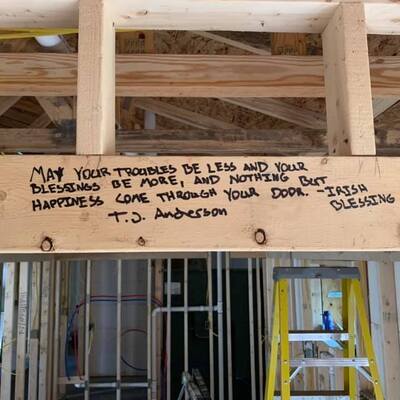 MAY YOUR TROUBLES BE LESS AND YOUR
BLESSINGS BE MORE, AND NOTHING BUT
HAPPINESS COME THROUGH YOUR DOOR. -IRISH BLESSING
T.J. Anderson